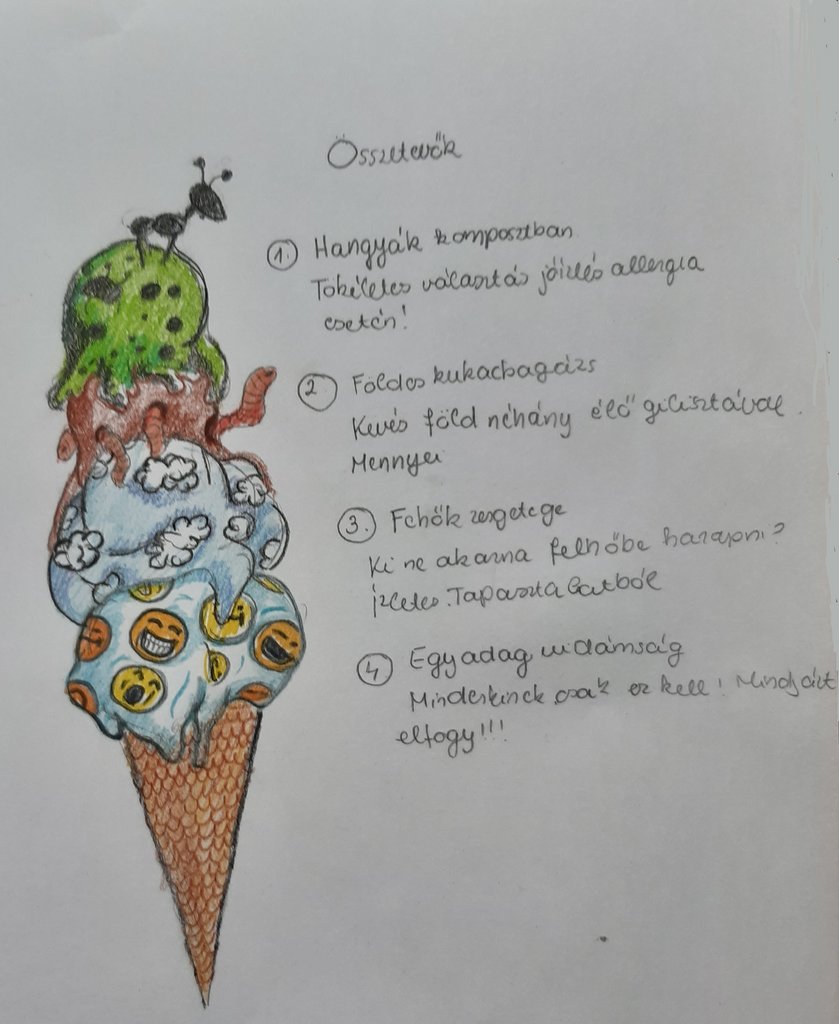 Összetevők
1. Hangyák komposztban
Tökéletes választás jóizlés allergia
esetén!
2. Földes kukacbagázs
Kevés föld néhány élő gilisztával.
Mennyei
3. Felhők rengetege
Ki ne akarna felhőbe harapni?
ízletes. Tapasztalatból
4. Egy adag vidámság
Mindenkinek csak ez kell! Mindjárt
elfogy!!!